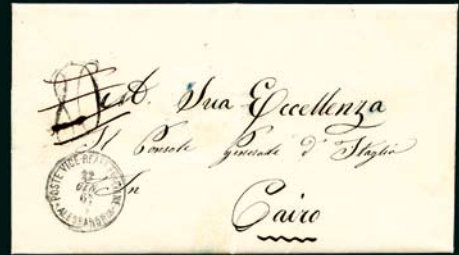 A Sua Eccellenza
Il Console Generale d'Italia
In
Cairo
POSTE VICE-REALI EGIZIANE
22
GEN
ALESSANDRIA